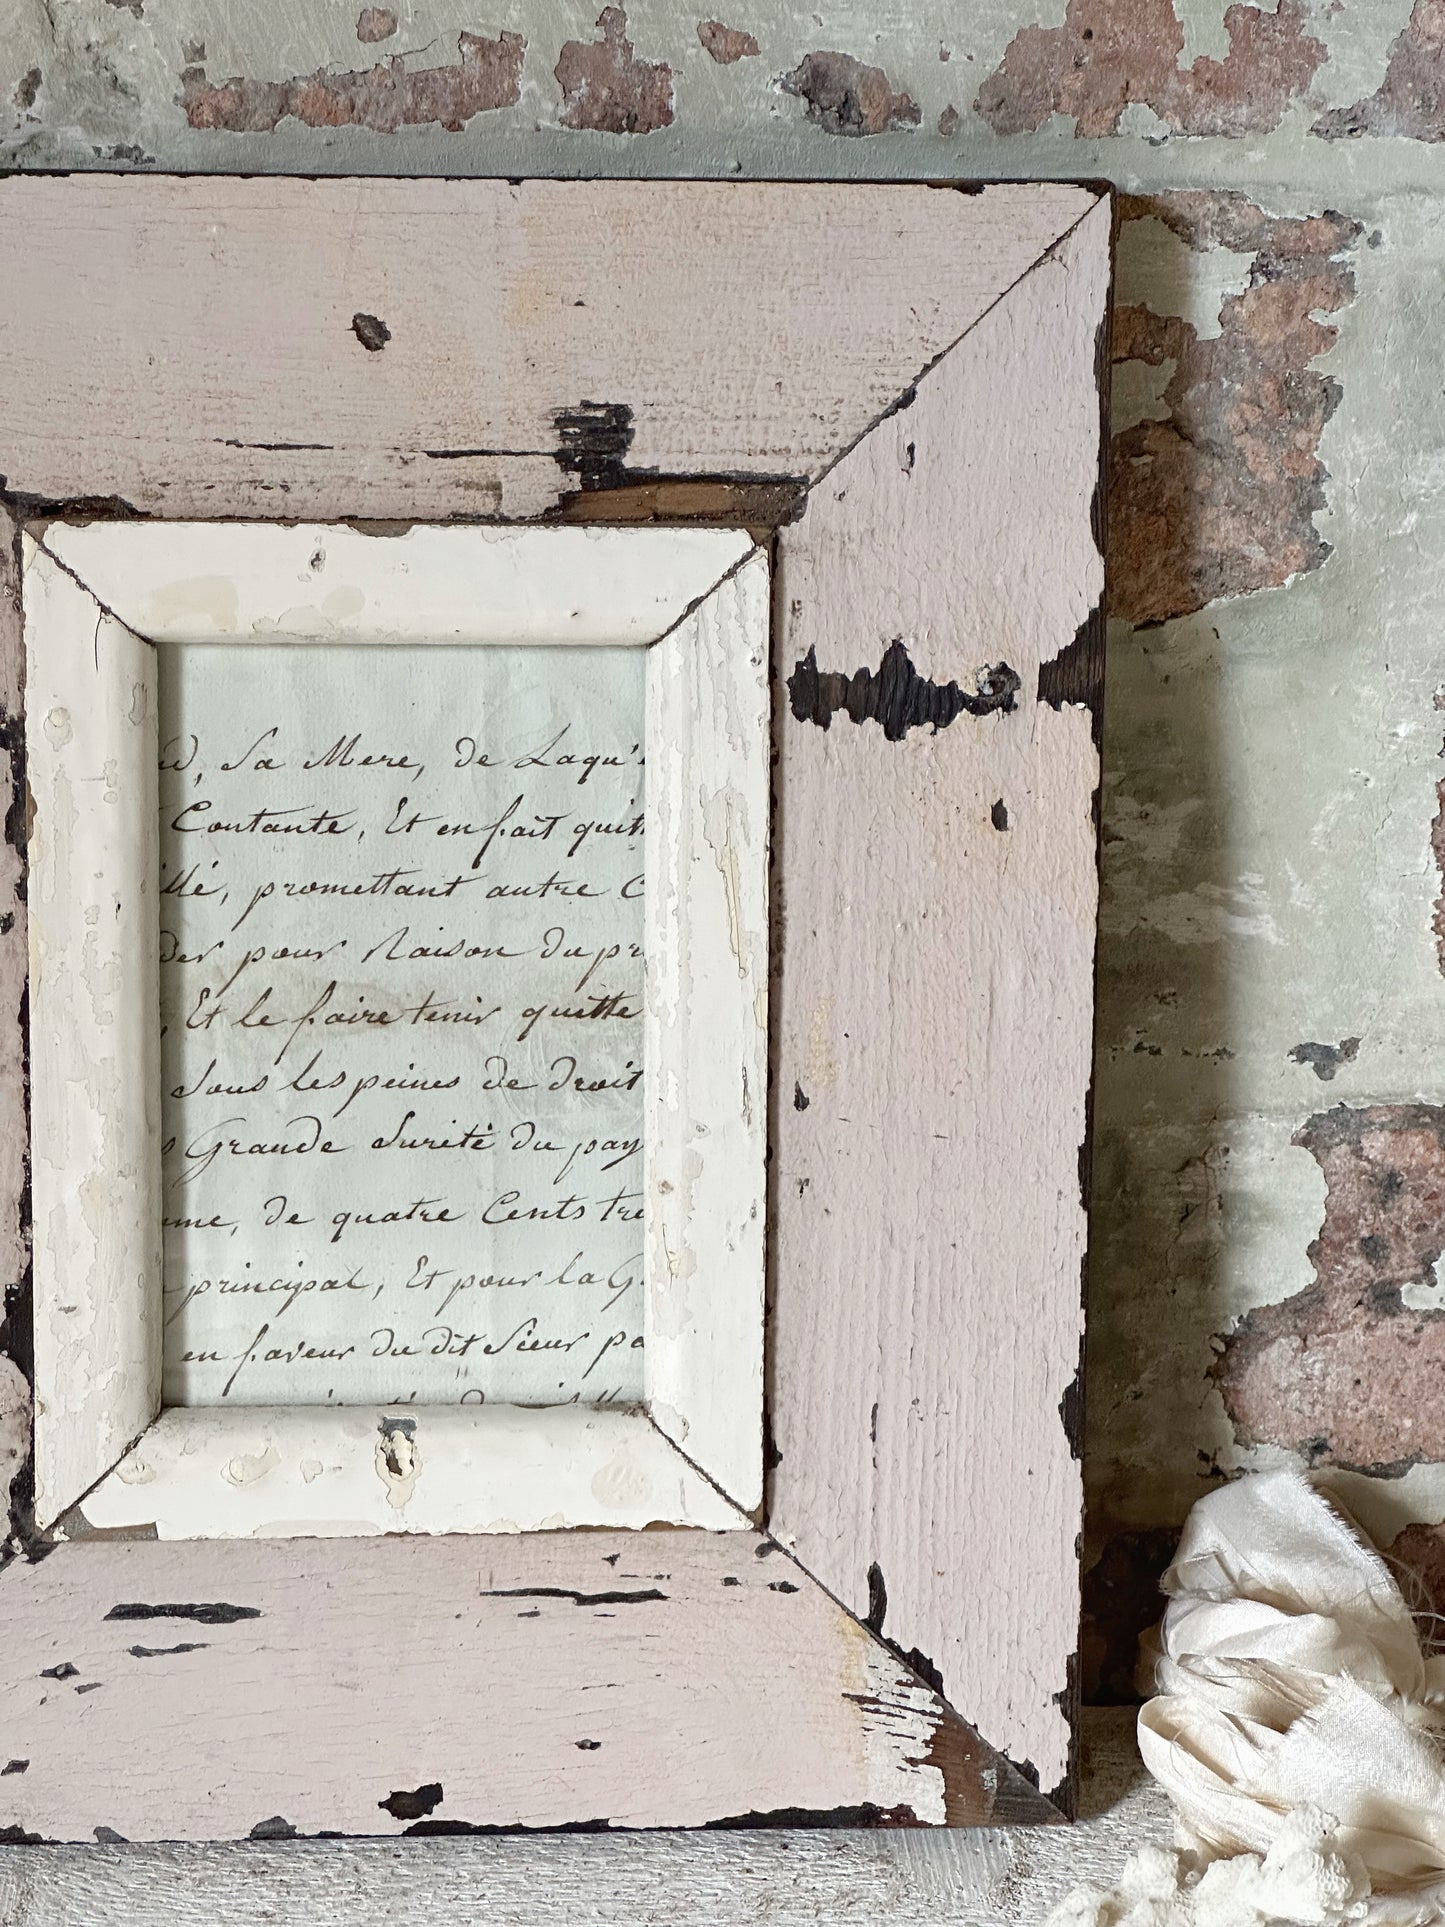 d, Sa Mere, de Laqu'
Contante, Et en fait quitt
illé, promettant autre C
der pour Raison du pr
, Et le faire tenir quitte
Sous les peines de droit
s Grande Sureté du pay
me, de quatre Cents tre
principal, Et pour la G
en faveur du dit Sieur pa